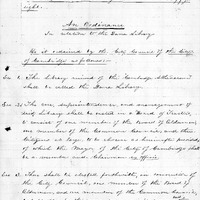 eight.
An Ordinance
In relation to the Dana Library.
Be it ordained by the City Council of the City
of Cambridge as follows:
Sec. 1. The Library owned of the Cambridge Athenaeum
shall be called the Dana Library.
Sec. 2. The care, superintendence, and management of
said Library shall be vested in a Board of Trustees
to consist of one member of the Board of Aldermen,
one member of the Common Council, and
citizens at large, to be chosen as hereinafter provided
of which the Mayor of the City of Cambridge shall
be a member and Chairman ex officio.
shall be elected forthwith, in convention of
the City Council, one member of the Board of
Aldermen, and one member of the Common Council,